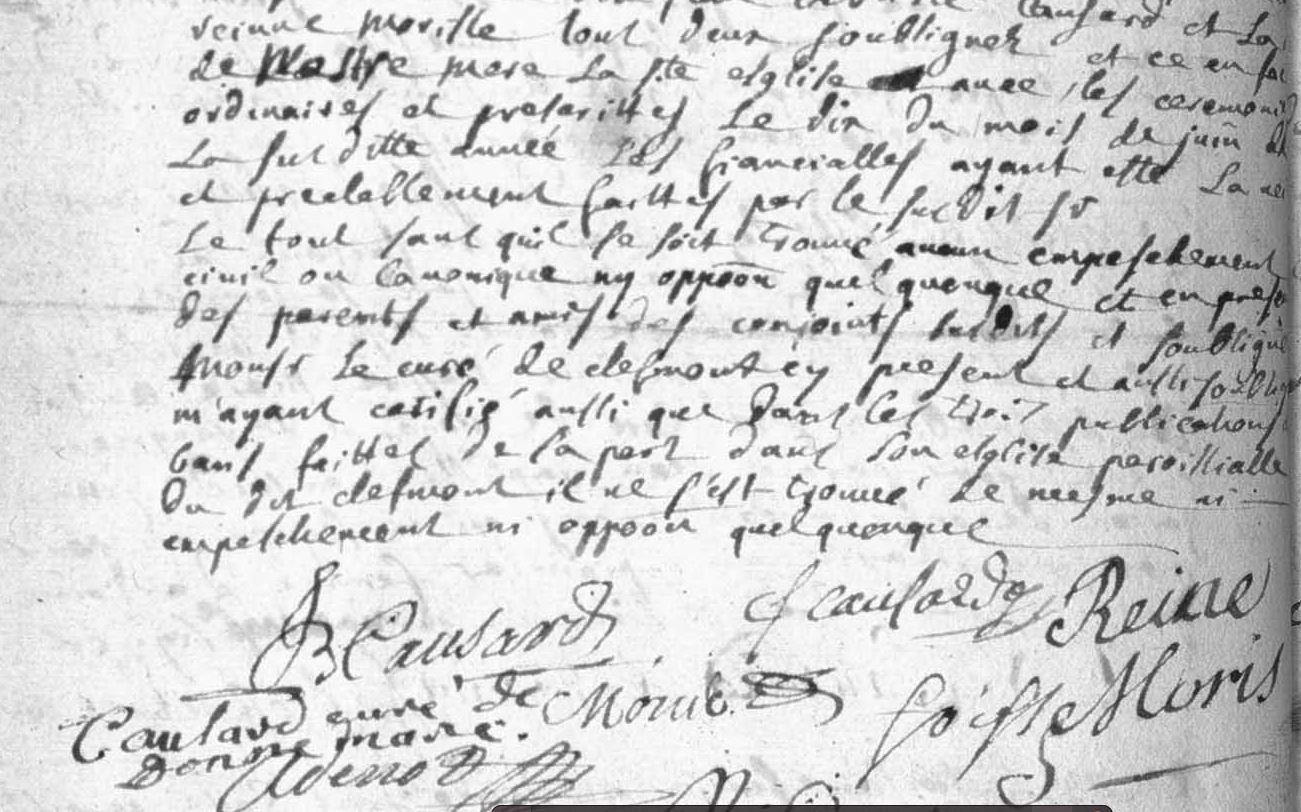 Causard et La
reinne morisse tout deux soubsignez et ce en fac
de Nostre mere La ste esglise avec les ceremoni
ordinaires et prescrittes Le dix du mois de juin d
La sus ditte année Les fiancialles ayant esté La
et prealablement faittes par le susdit sr
Le tout sans quil se soit trouvé aucun empeschement
civil ou canonique ny oppoōn quelquonque et en prese
des parents et amis des conjoints susdits et soubsigne
Monsr Le curé de clefmont ÿ present et aussi soubsig
m'ayant certifié aussi que dans les trois publications
bans faittes de sa part dans son esglise paroissialle
du dit clefmont il ne s'est trouvé de mesme ni
empeschement ni oppoōn quelquonque
Causard causard Reine
Causard curé de
Donne marie. foisse Moris